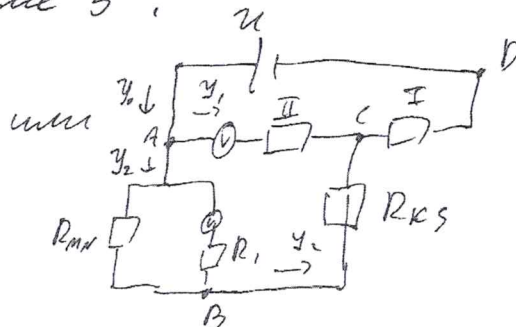 U
D
y₀ ↓ y₁ →
или A V II C I
y₂ ↓
R_MN R₁ y₂ → R_KS
B